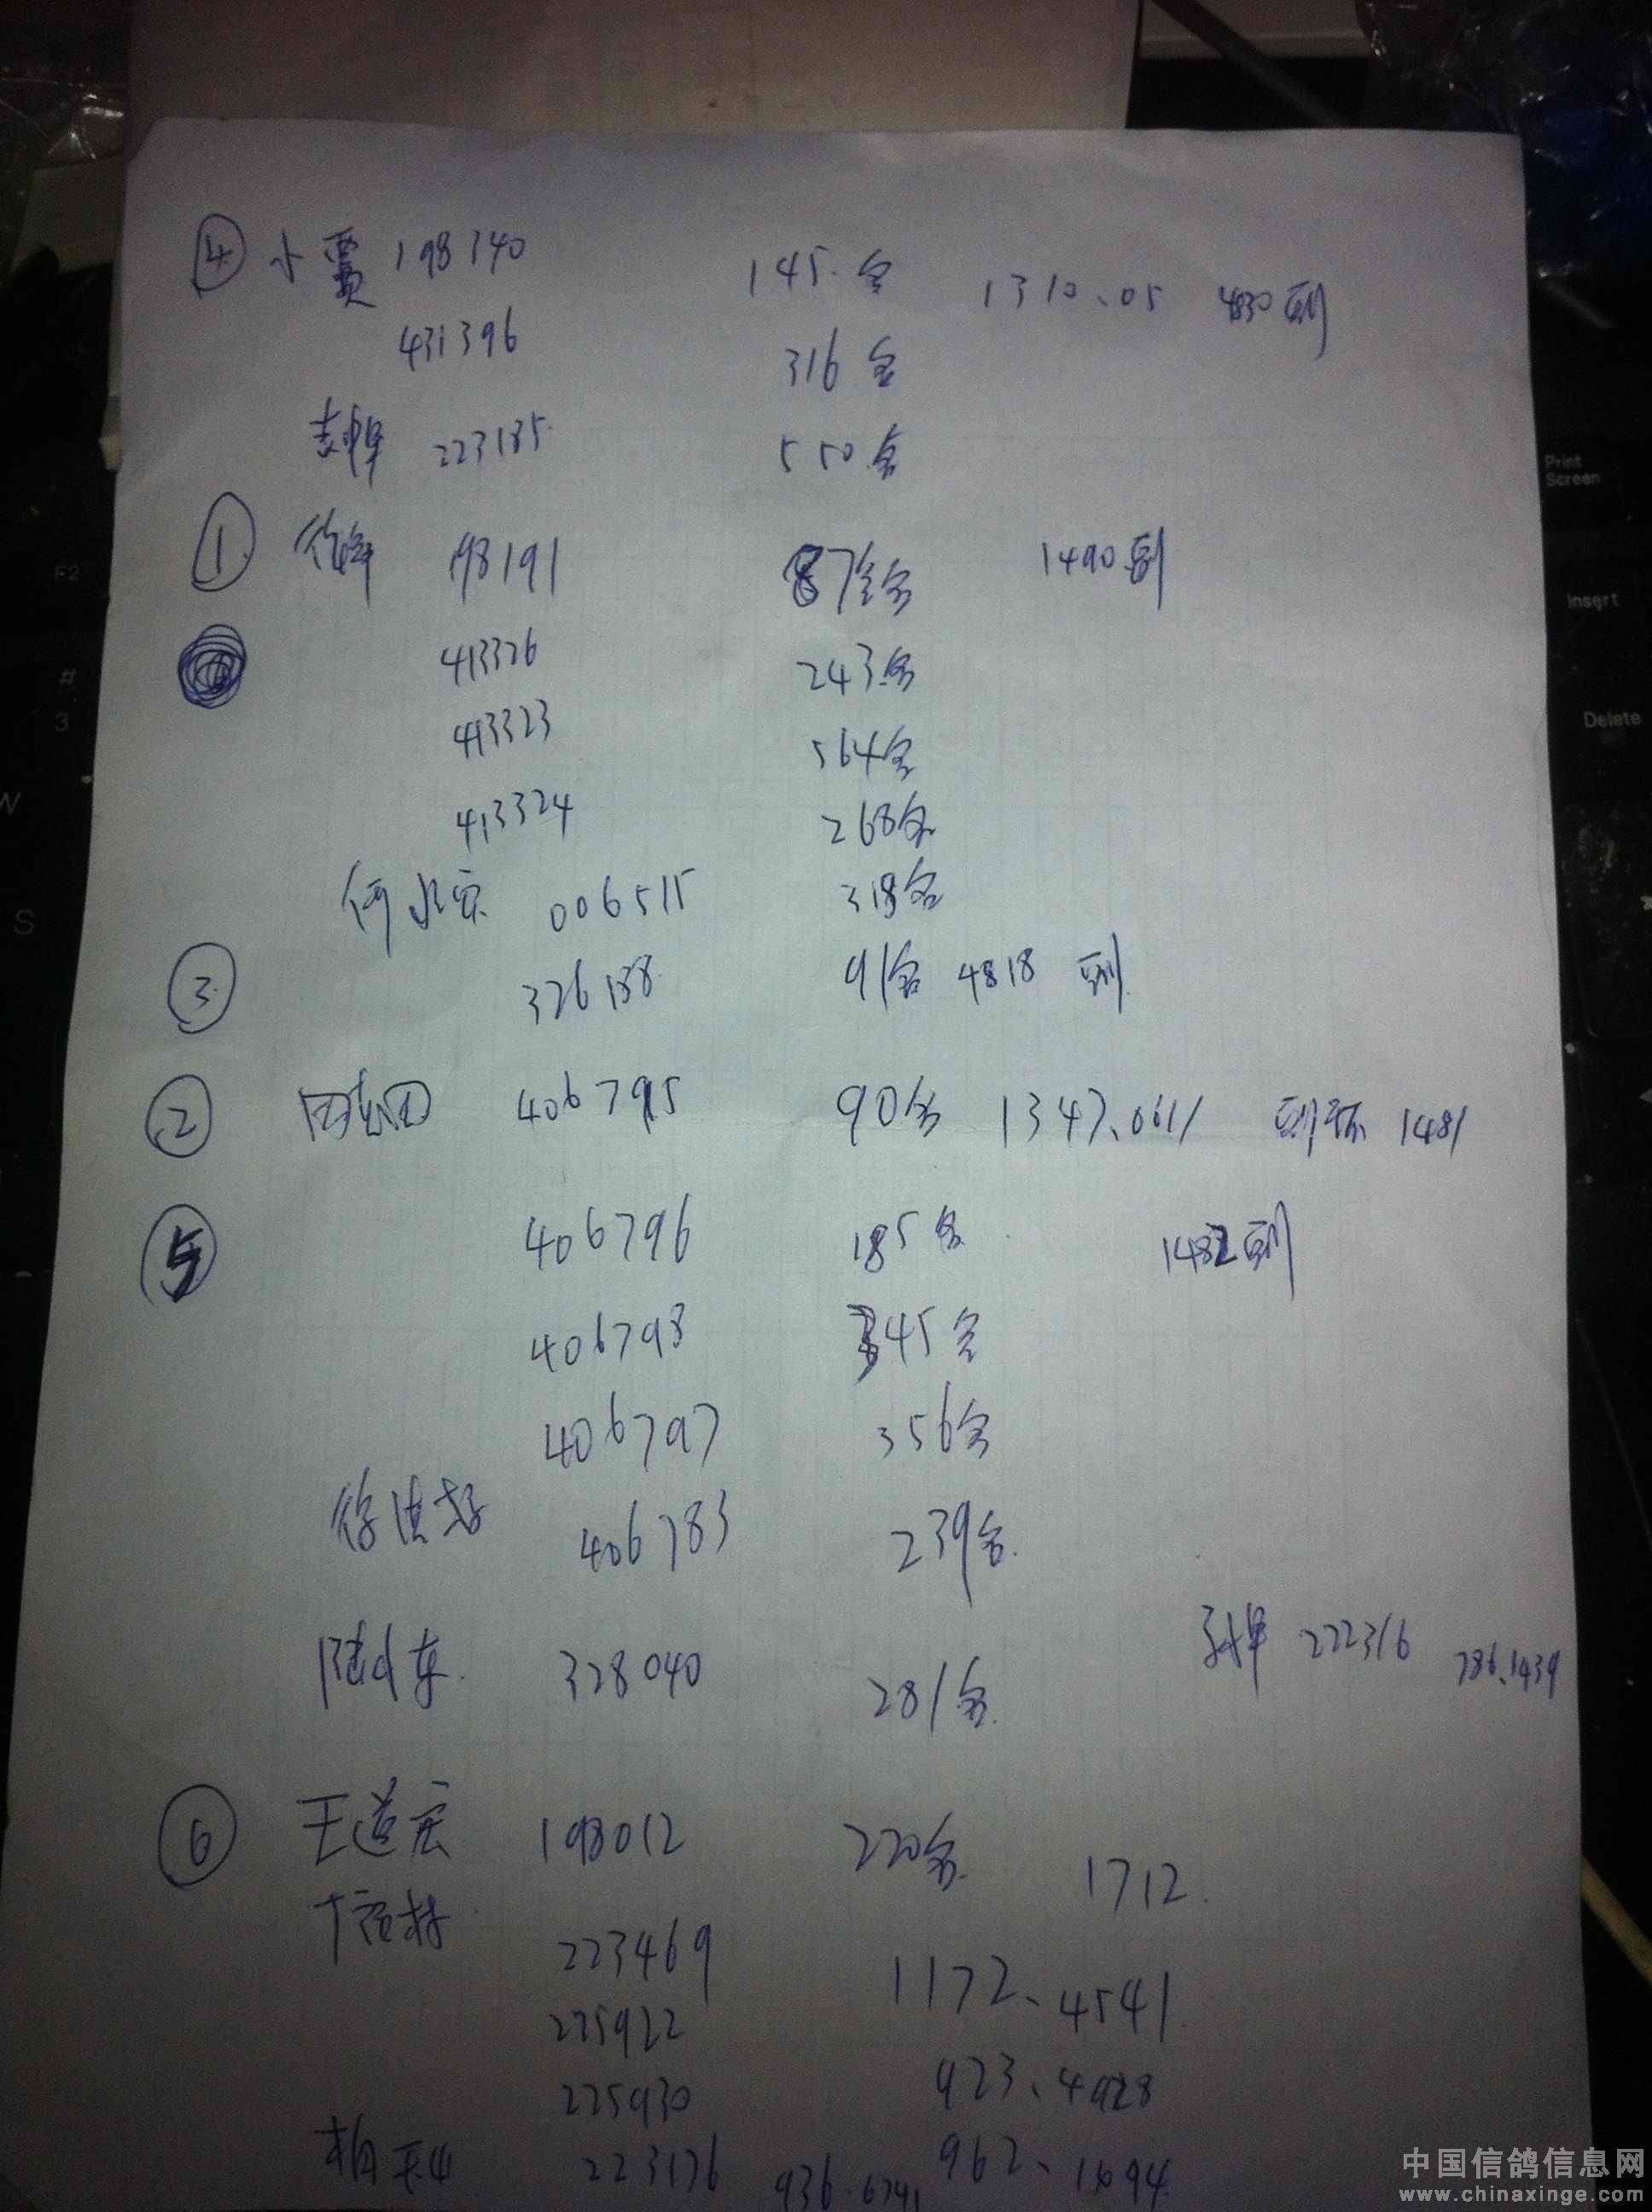 ④ 小贾 198340 145名 1310.05 4830到
431396 316名
223185 550名
① 徐峰 198191 87名 1490到
413326 243名
413323 564名
413324 268名
何 006515 318名
③ 326188 91名 4818 到
② 406795 90名 1347.0611 1481
⑤ 406796 185名 1482到
406793 345名
406797 356名
徐 406783 239名
陆小东 328040 281名
222316 786.1439
⑥ 王道宏 198012 220名 1712
223469 1172.4541
225922
225930 923.4928
223176 936.6741 962.1694
Print Screen
Insert
Delete
F2
# 3
W
S
中国信鸽信息网
www.chinaxinge.com